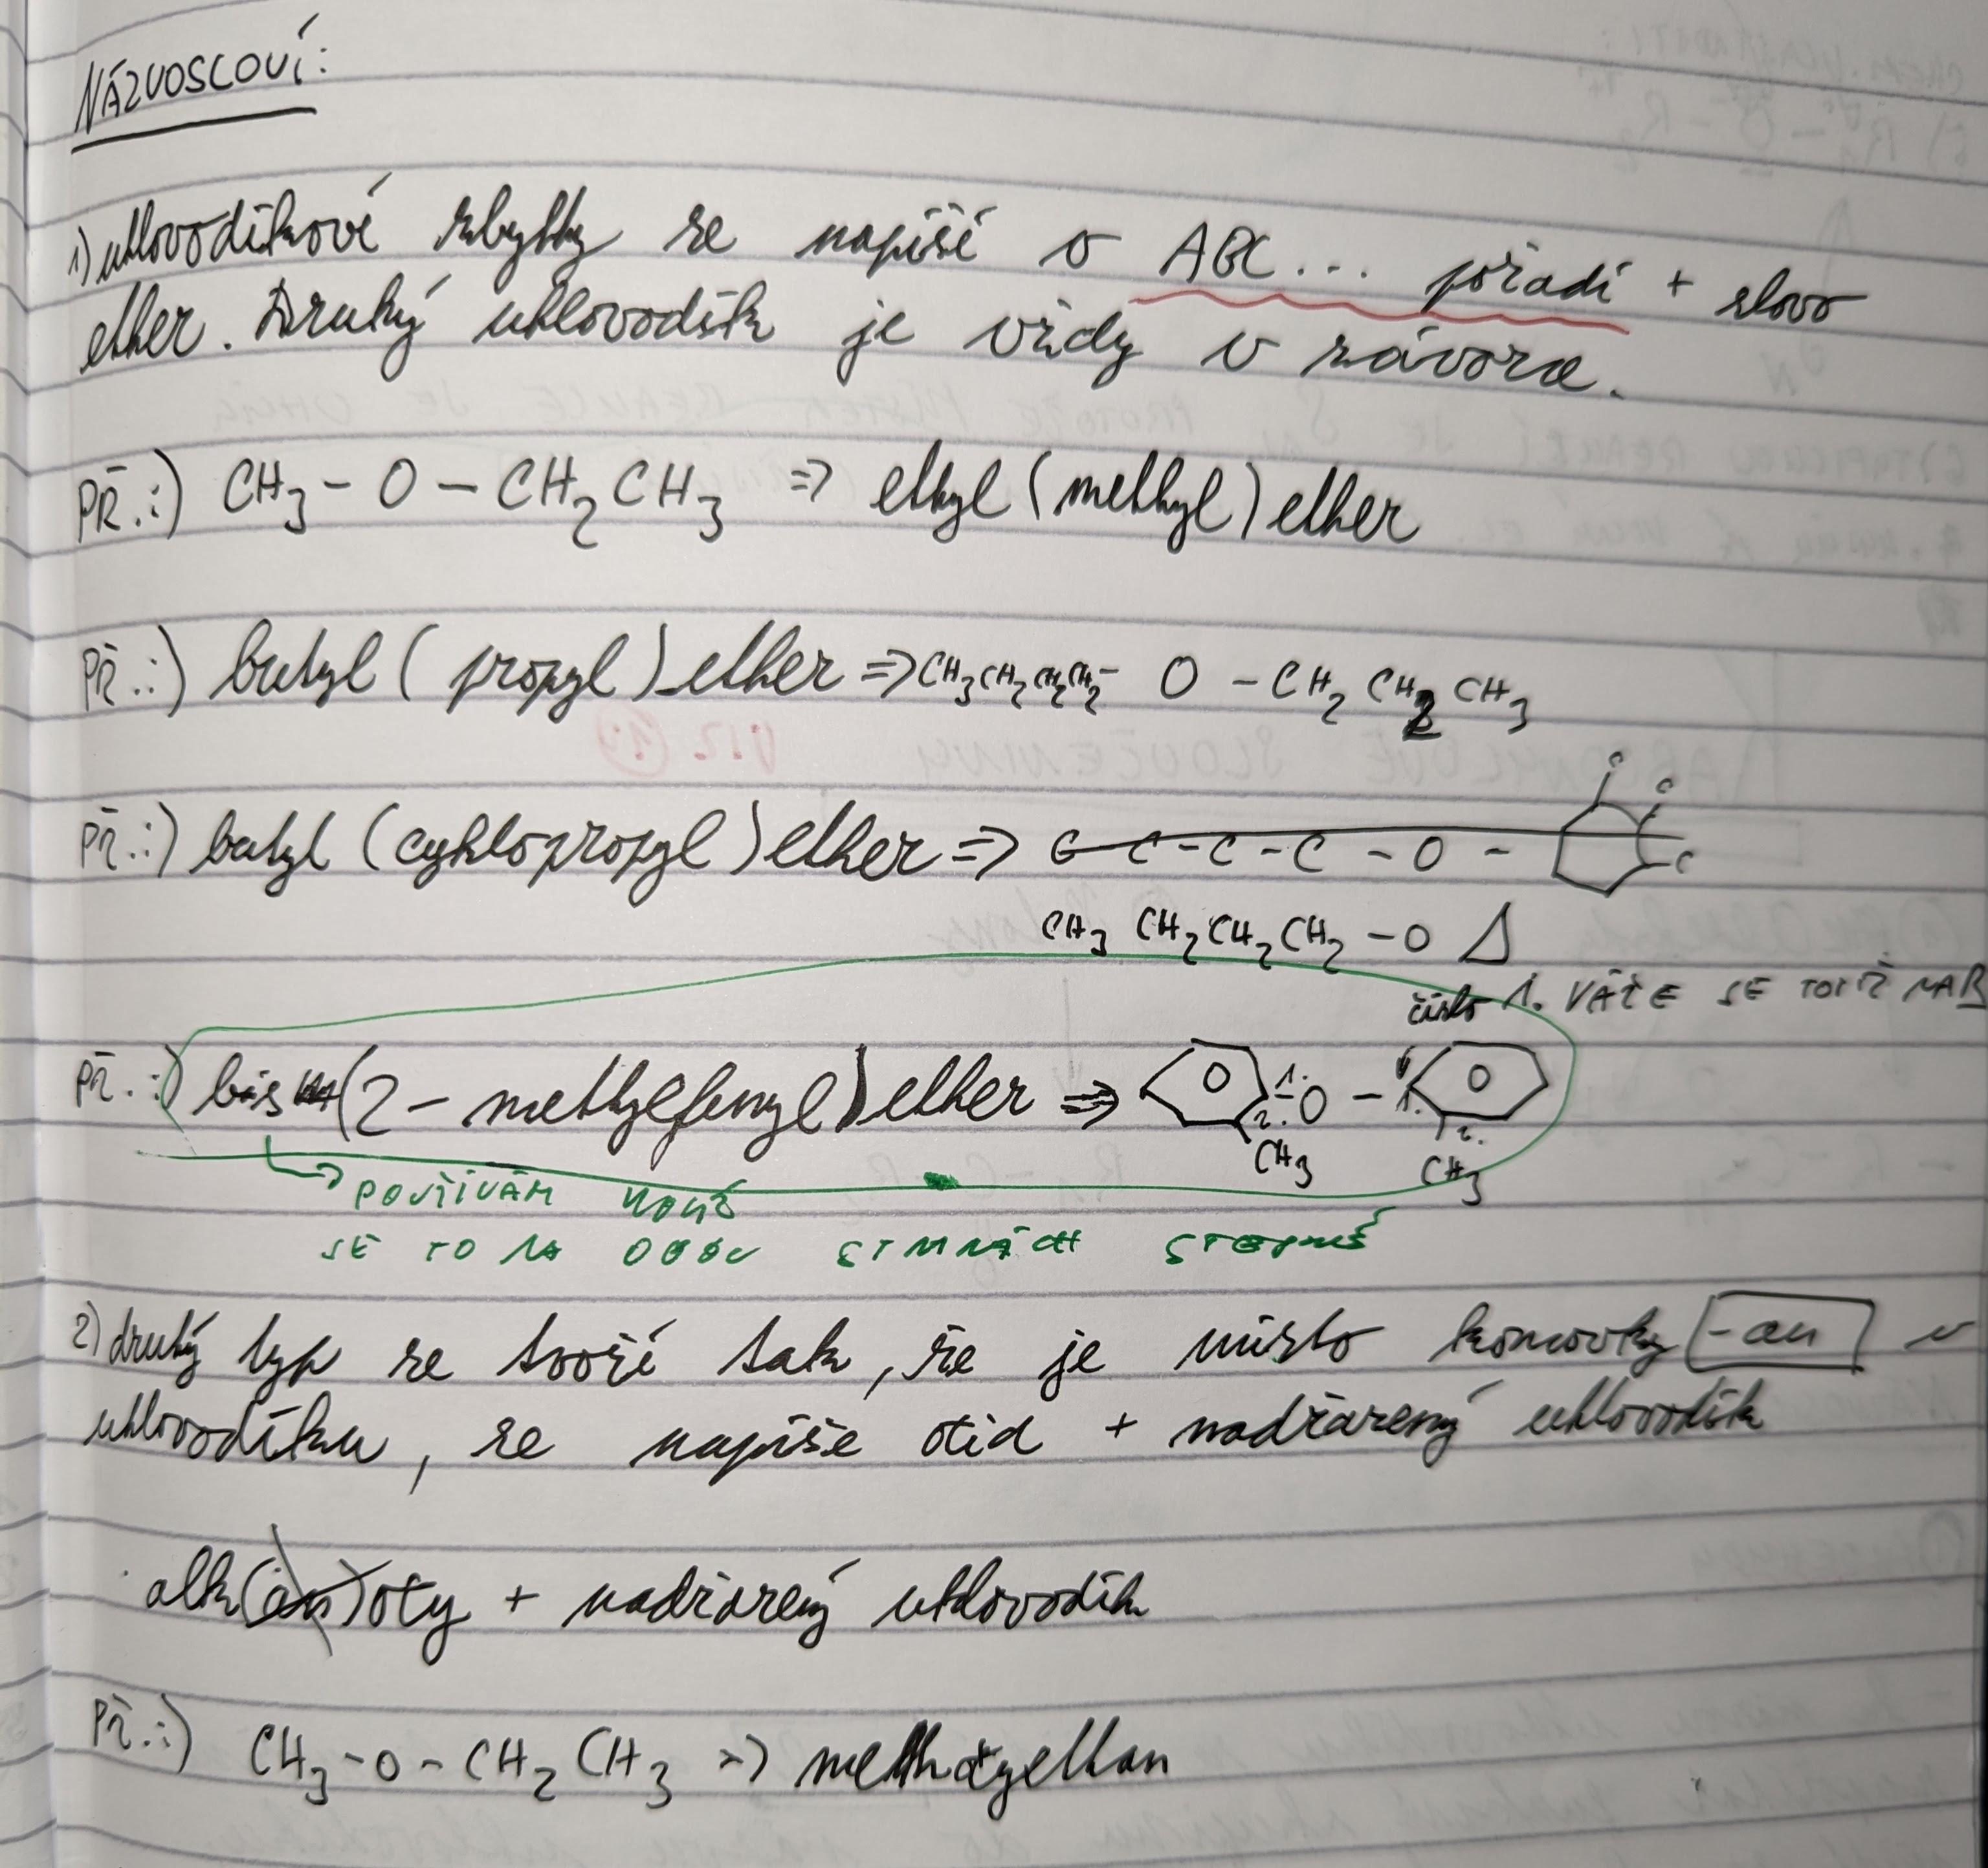 NÁZVOSLOVÍ:
1) uhlovodíkové zbytky se napíší v ABC... pořadí + slovo
ether. Druhý uhlovodík je vždy v závorce.
PŘ.:) CH3 - O - CH2CH3 => ethyl(methyl)ether
PŘ.:) butyl(propyl)ether => CH3CH2CH2CH2 - O - CH2CH2CH3
PŘ.:) butyl(cyklopropyl)ether => C-C-C-C-O-
CH3 CH2CH2CH2-O
číslo 1. VÁŽE SE TOTIŽ NA
PŘ.:) bis(2-methylfenyl)ether => 1. O - 1.
2. 2.
CH3 CH3
POUŽÍVÁM KDYŽ
SE TO NA OBOU STRANÁCH STEJNÉ
2) druhý typ se tvoří tak, že je místo koncovky -an v
uhlovodíku, se napíše + nadřazený uhlovodík
alk(an)oxy + nadřazený uhlovodík
PŘ.:) CH3-O-CH2CH3 => methoxyethan